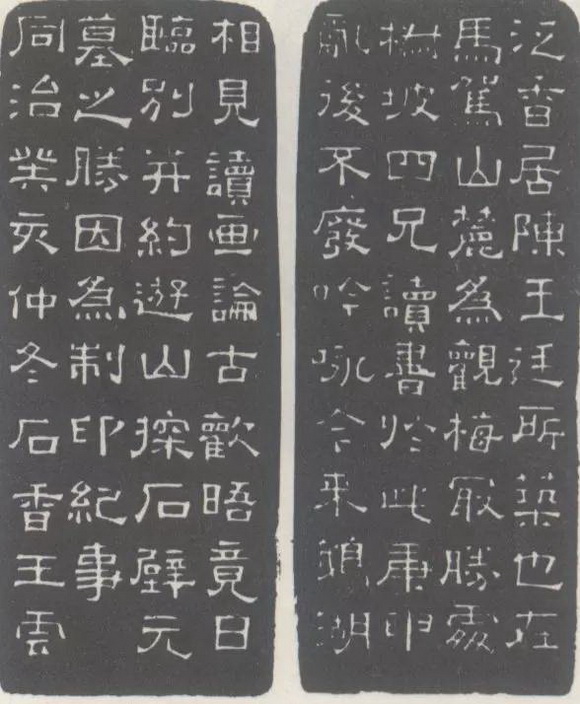 泛香居陳王廷所築也在
馬駕山麓為觀梅冣勝處
樹坡四兄讀書於此庚申
亂後不廢吟咏今來鴛湖
相見讀画論古歡晤竟日
臨別并約遊山探石壁元
墓之勝因為制印紀事
同治癸亥仲冬石香王雲